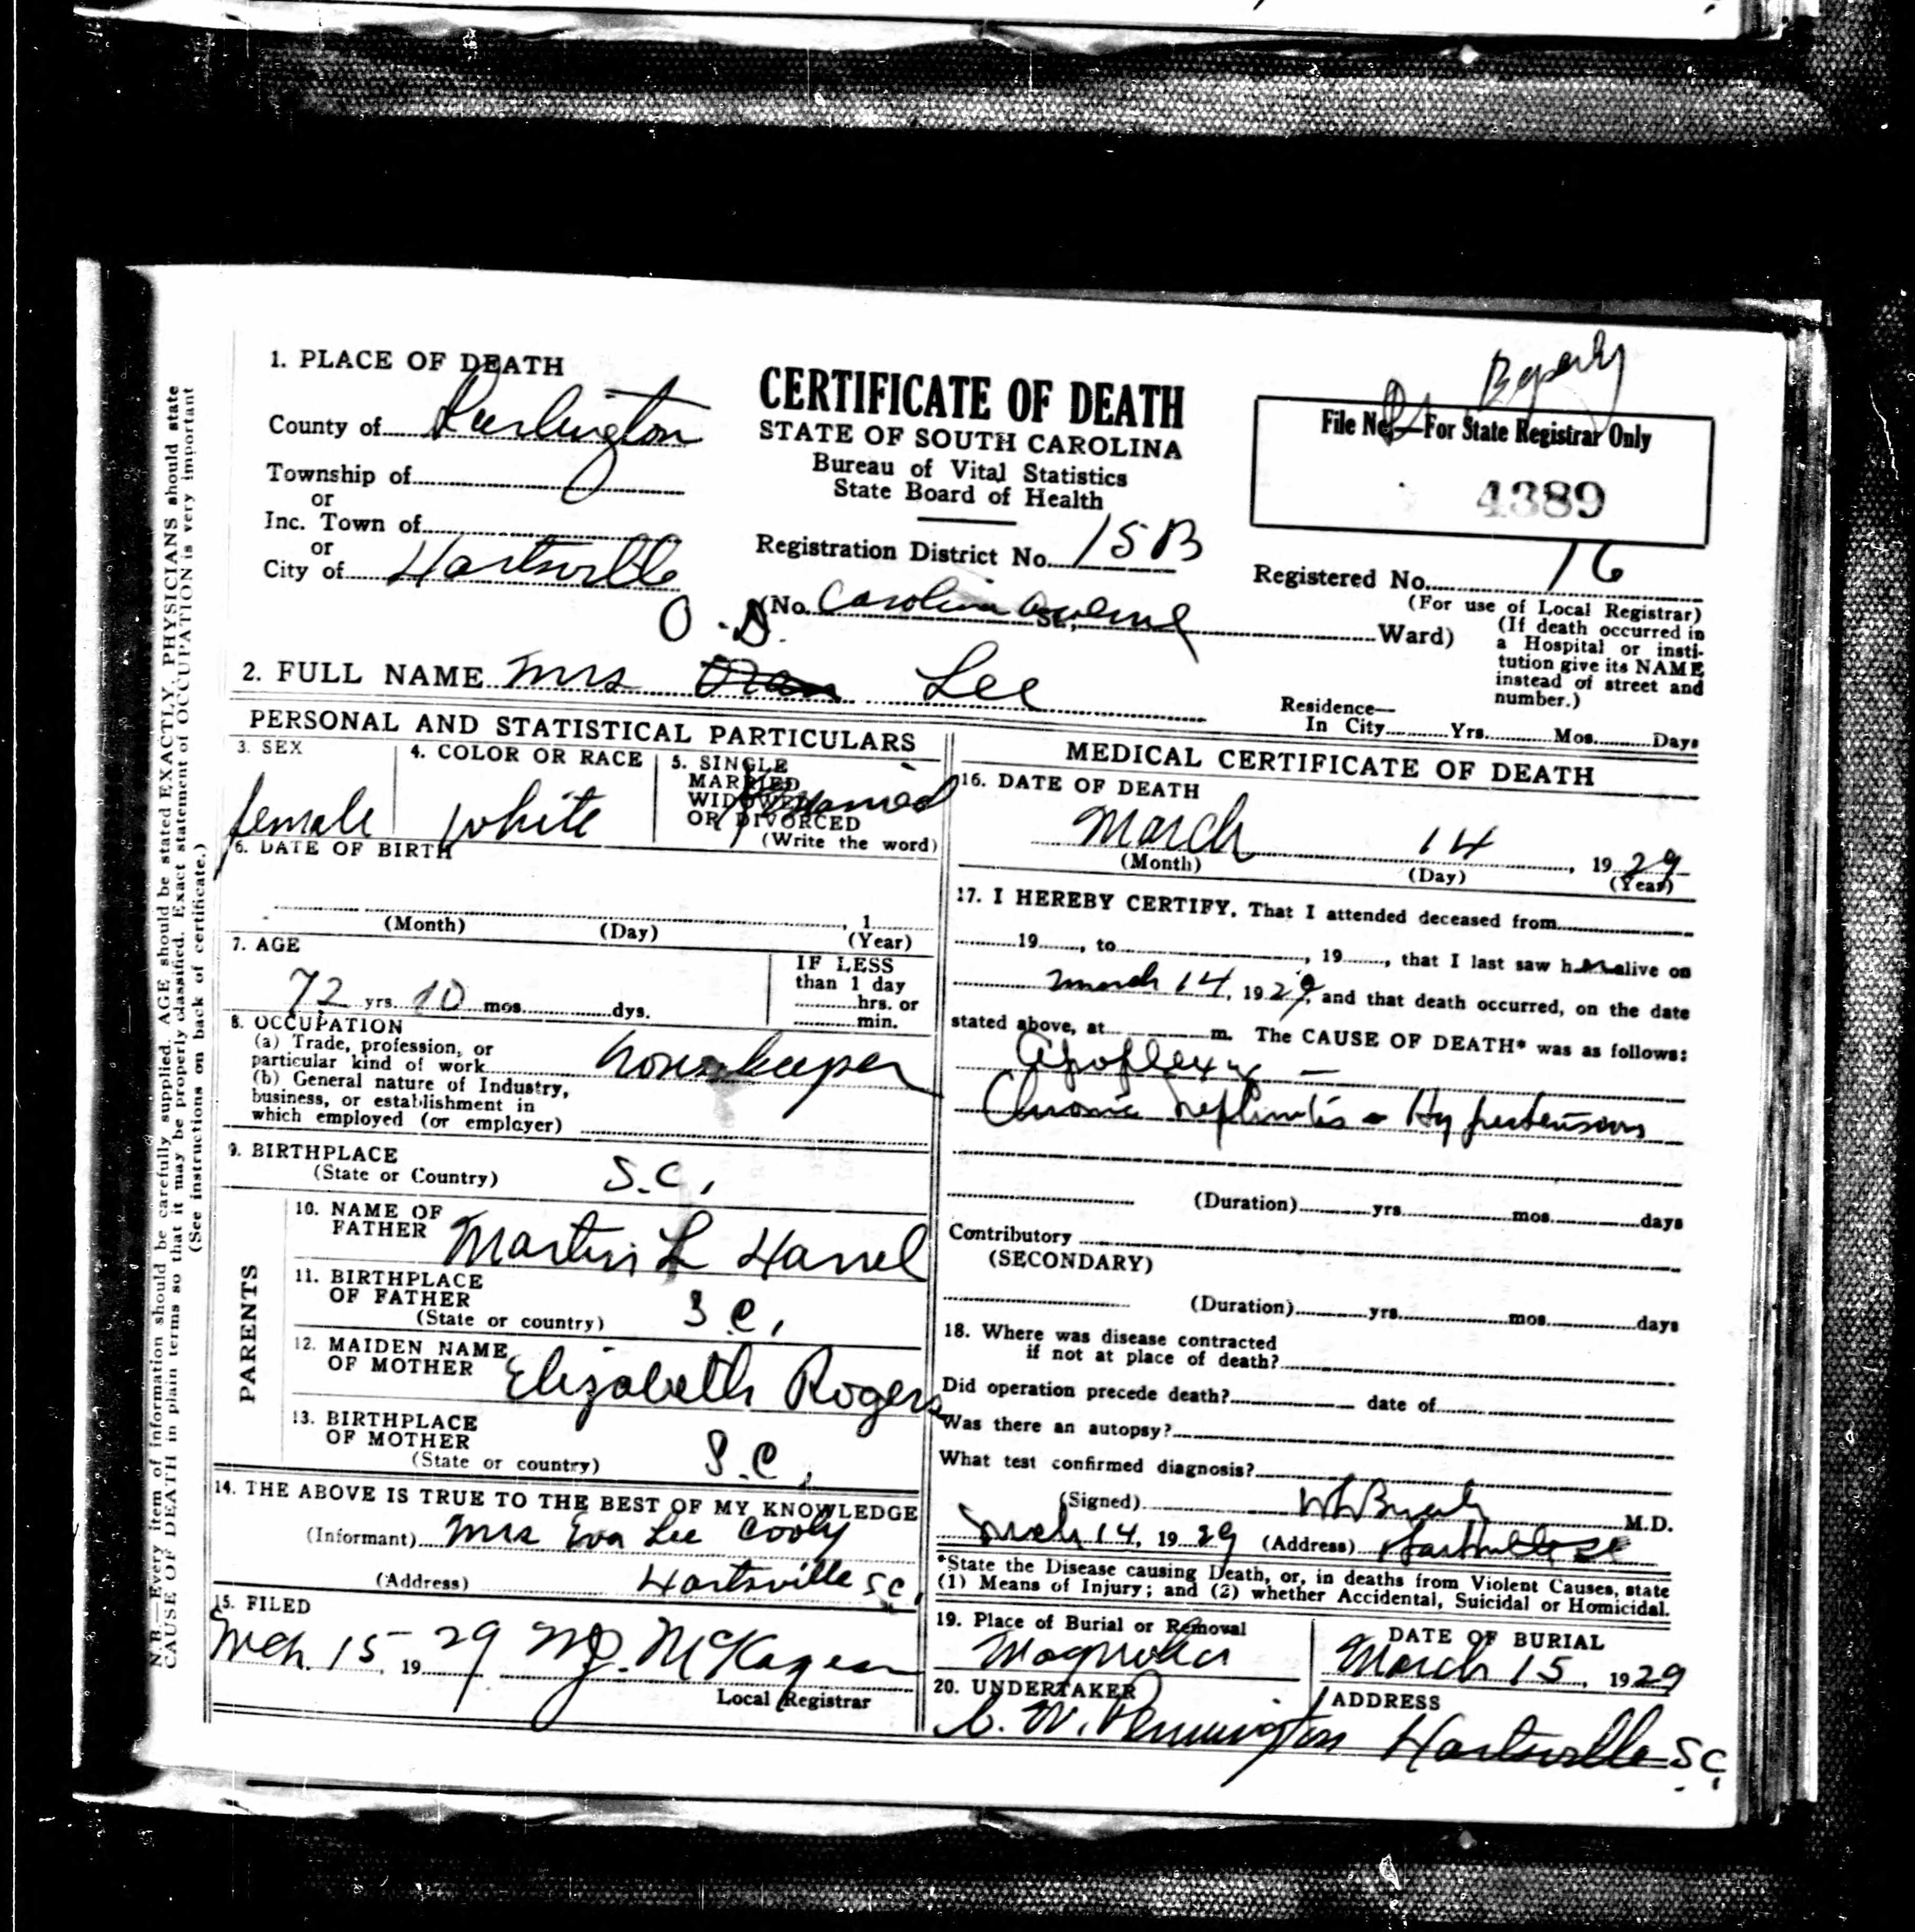 1. PLACE OF DEATH
County of Darlington
Township of
or
Inc. Town of
or
City of Hartsville
CERTIFICATE OF DEATH
STATE OF SOUTH CAROLINA
Bureau of Vital Statistics
State Board of Health
Registration District No. 15B
File No.—For State Registrar Only
4389
Registered No. 76
(For use of Local Registrar)
(No. Carolina Avenue St.; Ward)
(If death occurred in
a Hospital or insti-
tution give its NAME
instead of street and
number.)
O. D.
2. FULL NAME Mrs Lee
Residence—
In City Yrs. Mos. Days
PERSONAL AND STATISTICAL PARTICULARS
3. SEX
female
4. COLOR OR RACE
white
5. SINGLE
MARRIED
WIDOWED
OR DIVORCED
(Write the word)
married
6. DATE OF BIRTH
(Month) (Day) , 1 (Year)
7. AGE
72 yrs. 10 mos. dys.
IF LESS
than 1 day
hrs. or
min.
8. OCCUPATION
(a) Trade, profession, or
particular kind of work housekeeper
(b) General nature of Industry,
business, or establishment in
which employed (or employer)
9. BIRTHPLACE
(State or Country) S.C.
PARENTS
10. NAME OF
FATHER Martin L Harrel
11. BIRTHPLACE
OF FATHER
(State or country) S.C.
12. MAIDEN NAME
OF MOTHER Elizabeth Rogers
13. BIRTHPLACE
OF MOTHER
(State or country) S.C.
14. THE ABOVE IS TRUE TO THE BEST OF MY KNOWLEDGE
(Informant) Mrs Eva Lee
(Address) Hartsville S.C.
15. FILED
Mch. 15, 1929
Local Registrar
MEDICAL CERTIFICATE OF DEATH
16. DATE OF DEATH
March 14, 1929
(Month) (Day) (Year)
17. I HEREBY CERTIFY, That I attended deceased from
19 , to , 19 , that I last saw her alive on
March 14, 1929, and that death occurred, on the date
stated above, at m. The CAUSE OF DEATH* was as follows:
Apoplexy —
Chronic nephritis - Hypertension
(Duration) yrs. mos. days
Contributory
(SECONDARY)
(Duration) yrs. mos. days
18. Where was disease contracted
if not at place of death?
Did operation precede death? date of
Was there an autopsy?
What test confirmed diagnosis?
(Signed) M.D.
March 14, 1929 (Address) Hartsville SC
*State the Disease causing Death, or, in deaths from Violent Causes, state
(1) Means of Injury; and (2) whether Accidental, Suicidal or Homicidal.
19. Place of Burial or Removal
Magnolia
DATE OF BURIAL
March 15, 1929
20. UNDERTAKER
Pennington
ADDRESS
Hartsville S.C.
N.B.—Every item of information should be carefully supplied. AGE should be stated EXACTLY. PHYSICIANS should state
CAUSE OF DEATH in plain terms so that it may be properly classified. Exact statement of OCCUPATION is very important
(See instructions on back of certificate.)